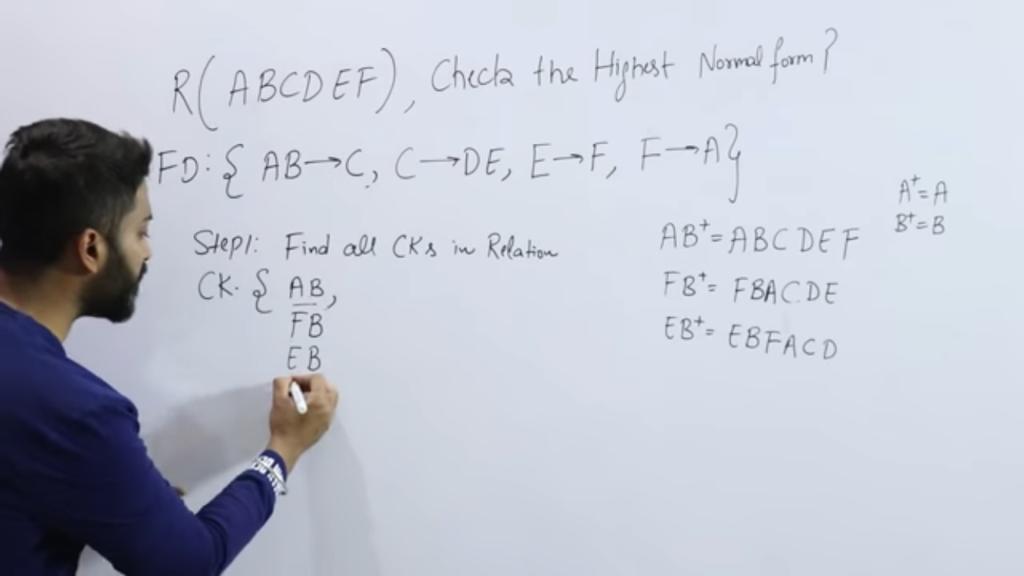 R(ABCDEF), Check the Highest Normal form?
FD: { AB→C, C→DE, E→F, F→A}
A⁺= A
B⁺= B
Step1: Find all CKs in Relation
CK. { AB,
FB
EB
AB⁺= ABCDEF
FB⁺= FBACDE
EB⁺= EBFACD